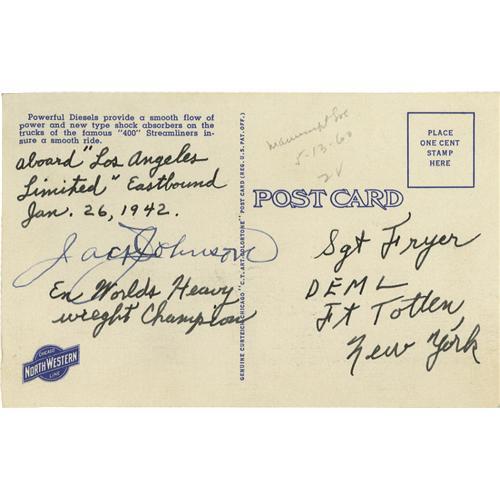 Powerful Diesels provide a smooth flow of
power and new type shock absorbers on the
trucks of the famous "400" Streamliners in-
sure a smooth ride.
aboard "Los Angeles
Limited" Eastbound
Jan. 26, 1942.
Jack Johnson
En Worlds Heavy
weight Champion
CHICAGO
NORTH WESTERN
LINE
GENUINE CURTEICH-CHICAGO "C.T. ART-COLORTONE" POST CARD (REG. U.S. PAT. OFF.)
5-13-60
PLACE
ONE CENT
STAMP
HERE
POST CARD
Sgt Fryer
DEML
Ft Totten,
New York